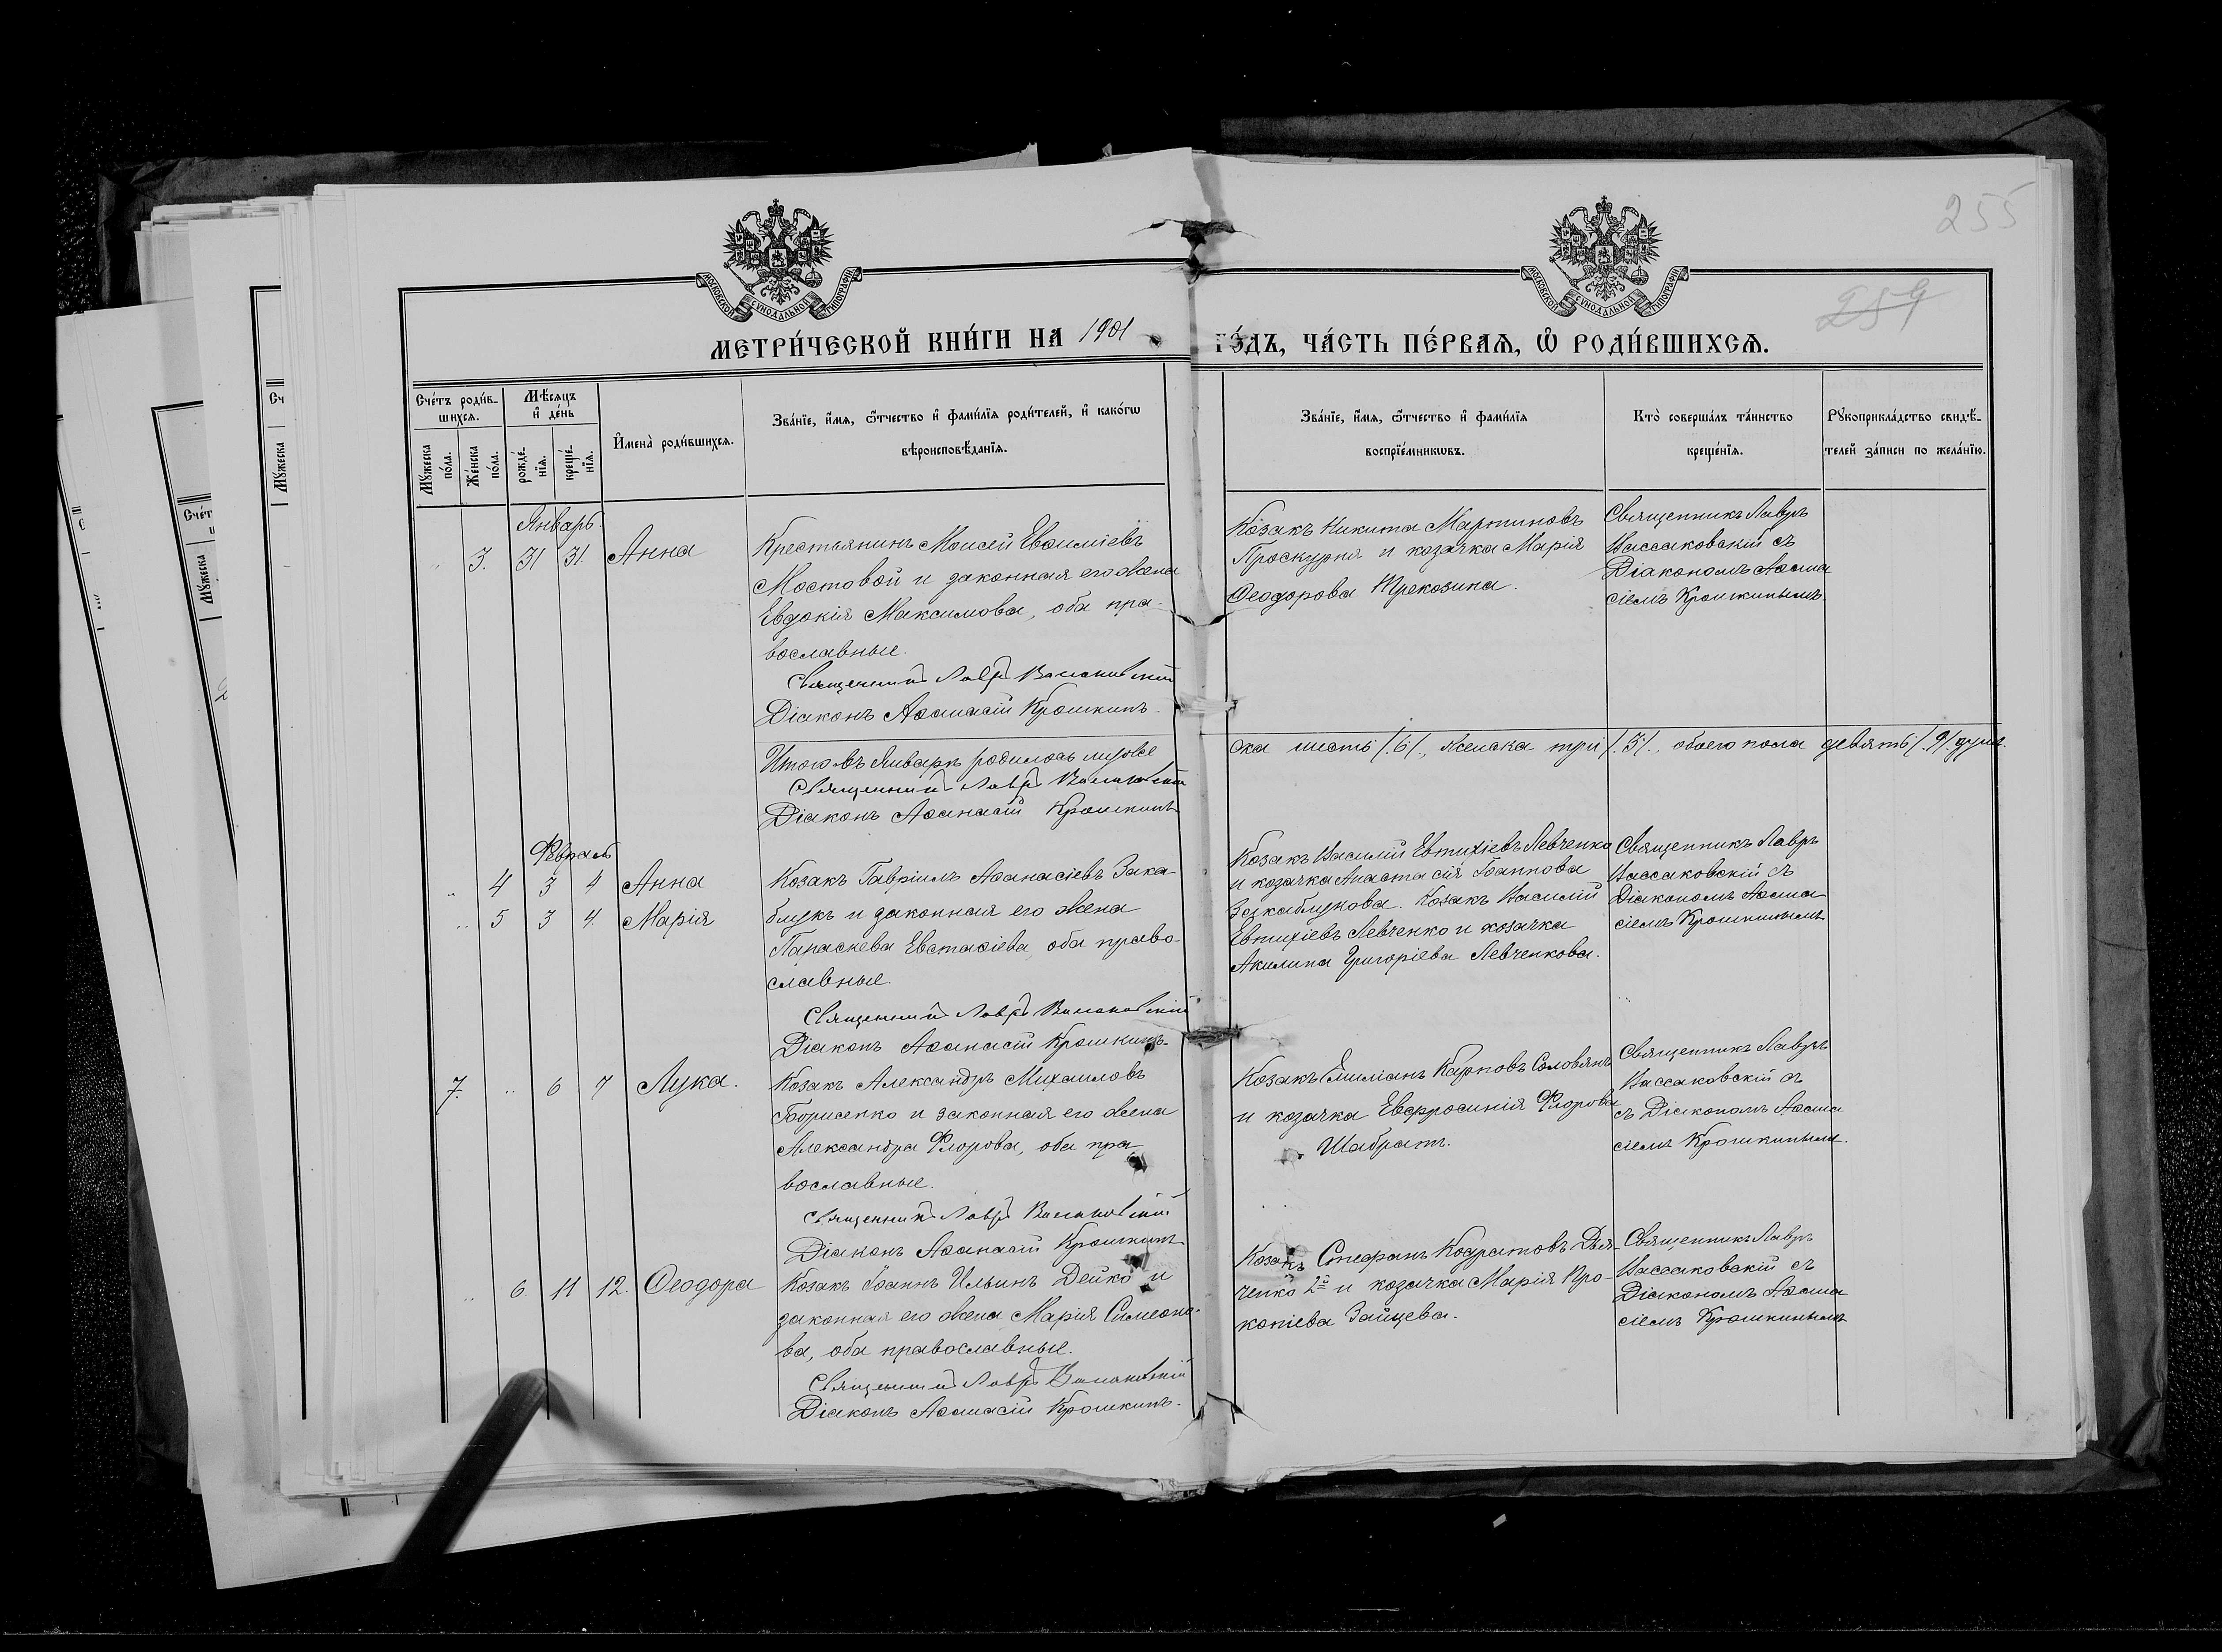 255
259
МОСКОВСКОЙ СѴНОДАЛЬНОЙ ТИПОГРАФІИ
МОСКОВСКОЙ СѴНОДАЛЬНОЙ ТИПОГРАФІИ
МЕТРИ́ЧЕСКОЙ КНИ́ГИ НА 1901 ГО́ДЪ, ЧА́СТЬ ПЕ́РВАѦ, Ѡ РОДИ́ВШИХСѦ.
Сче́тъ роди́в-
шихсѧ.
Мѣ́сѧцъ
и де́нь
Мꙋ́жеска
по́ла.
Же́нска
по́ла.
рожде́-
нїѧ.
креще́-
нїѧ.
Имена̀ роди́вшихсѧ.
Зва́нїе, и́мѧ, ѻ҆́тчество и҆ фами́лїѧ роди́телей, и҆ како́гѡ
вѣроисповѣ́данїѧ.
Зва́нїе, и́мѧ, ѻ҆́тчество и҆ фами́лїѧ
воспрїе́мникѡвъ.
Кто̀ соверша́лъ та́инство
креще́нїѧ.
Рꙋкоприкла́дство свидѣ́-
телей за́писи по жела́нїю.
Январь.
" 3. 31 31. Анна
Крестьянинъ Моисей Евѳиміевъ
Мостовой и законная его жена
Евдокія Максимова, оба пра-
вославные.
Священникъ Лавръ Вассаковскій
Діаконъ Аѳанасій Крошкинъ.
Козакъ Никита Мартиновъ
Проскурня и козачка Марія
Ѳеодорова
Священникъ Лавръ
Вассаковскій съ
Діакономъ Аѳана
сіемъ Крошкинымъ.
Итого въ Январѣ родилось мужес
ска шесть /.6/., женска три /.3/., обоего пола девять /.9/. душъ.
Священникъ Лавръ Вассаковскій
Діаконъ Аѳанасій Крошкинъ
Февраль
" 4 3 4 Анна
" 5 3 4. Марія
Козакъ Гавріилъ Аѳанасіевъ Зака-
блукъ и законная его жена
Параскева Евстаѳіева, оба право-
славные.
Священникъ Лавръ Вассаковскій
Діаконъ Аѳанасій Крошкинъ.
Козакъ Василій Евтихіевъ Левченко
и козачка Анастасія Іоаннова
Закаблукова. Козакъ Василій
Евтихіевъ Левченко и козачка
Акилина Григоріева Левченкова.
Священникъ Лавръ
Вассаковскій съ
Діакономъ Аѳана
сіемъ Крошкинымъ
7. " 6 7 Лука.
Козакъ Александръ Михаиловъ
Борисенко и законная его жена
Александра Флорова, оба пра-
вославные.
Священникъ Лавръ Вассаковскій
Діаконъ Аѳанасій Крошкинъ
Козакъ Емиліанъ Карповъ Соловянъ
и козачка Евфросинія Флорова
Шабратъ.
Священникъ Лавръ
Вассаковскій съ
съ Діакономъ Аѳана
сіемъ Крошкинымъ.
" 6 11 12. Ѳеодора
Козакъ Іоаннъ Ильинъ Дейко и
законная его жена Марія Симеоно-
ва, оба православные.
Священникъ Лавръ Вассаковскій
Діаконъ Аѳанасій Крошкинъ.
Козакъ Стефанъ Кодратовъ Дья-
ченко 2й и козачка Марія Про-
копіева Зайцева.
Священникъ Лавръ
Вассаковскій съ
Діакономъ Аѳана
сіемъ Крошкинымъ